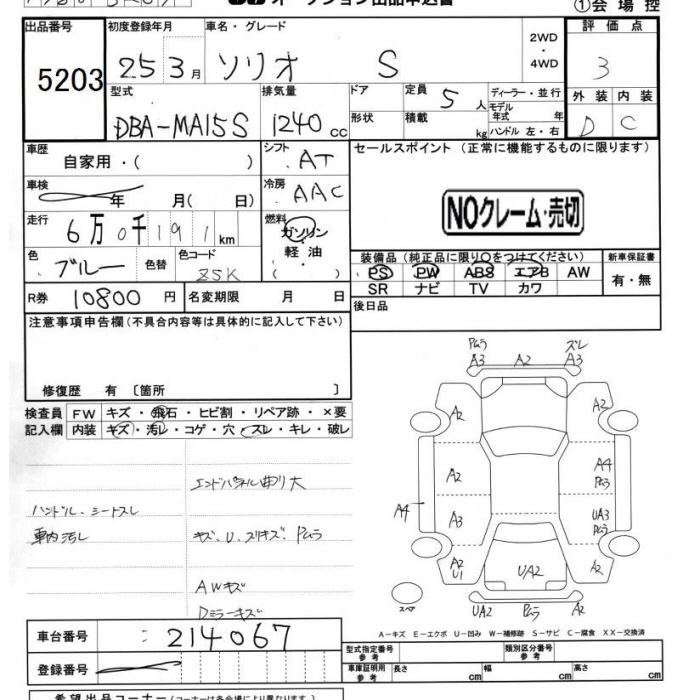 オークション出品申込書
①会場控
出品番号 5203
初度登録年月 25 3月
車名・グレード ソリオ S
2WD・4WD
評価点 3
型式 DBA-MA15S
排気量 1240cc
ドア 形状
定員 5人
積載 kg
ディーラー・並行
モデル年式 年
ハンドル 左・右
外装 D
内装 C
車歴 自家用・( )
シフト AT
セールスポイント (正常に機能するものに限ります)
車検 年 月( 日)
冷房 AAC
NOクレーム・売切
走行 6万0千191km
燃料 ガソリン・軽油・( )
色 ブルー 色替
色コード Z5K
装備品 (純正品に限り○をつけてください)
新車保証書
PS PW ABS エアB AW
有・無
SR ナビ TV カワ
R券 10800円
名変期限 月 日
後日品
注意事項申告欄(不具合内容等は具体的に記入して下さい)
修復歴 有 〔箇所 〕
検査員記入欄
FW キズ・飛石・ヒビ割・リペア跡・×要
内装 キズ・汚レ・コゲ・穴・スレ・キレ・破レ
エンドパネル曲リ大
ハンドル・シートスレ
車内汚レ
キズ、U、スリキズ、Pムラ
AWキズ
Dミラーキズ
Pムラ A3 A2 ズレ A3
A2 A2
A2 A4 Pムラ
A4 A3 UA3 Pムラ
A2 U1 UA2 A2
スペア UA2 Pムラ A2
A－キズ E－エクボ U－凹み W－補修跡 S－サビ C－腐食 XX－交換済
車台番号 214067
登録番号
型式指定番号 参考
類別区分番号 参考
車庫証明用 参考 長さ cm 幅 cm 高さ cm
希望出品コーナー(コーナーは各会場により異なります)